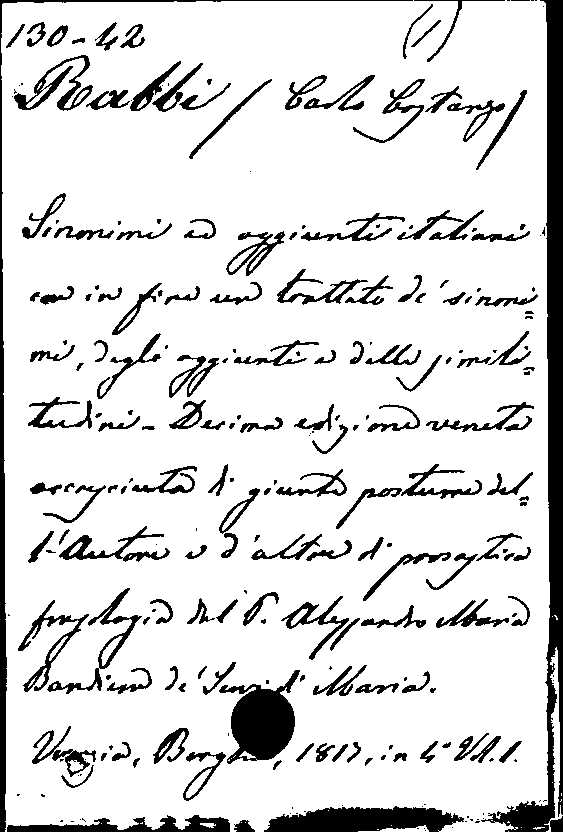 130-42 (1)
Rabbi / Carlo Costanzo /
Sinonimi ed aggiunti italiani
con in fine un trattato de' sinoni=
mi, degli aggiunti e delle simili=
tudini - Decima edizione veneta
accresciuta di giunte postume del=
l'Autore e d'altre di prosastica
fraseologia del P. Alessandro Maria
Bandiera de' Servi di Maria.
Venezia, 1817, in 4° Vol. 1.